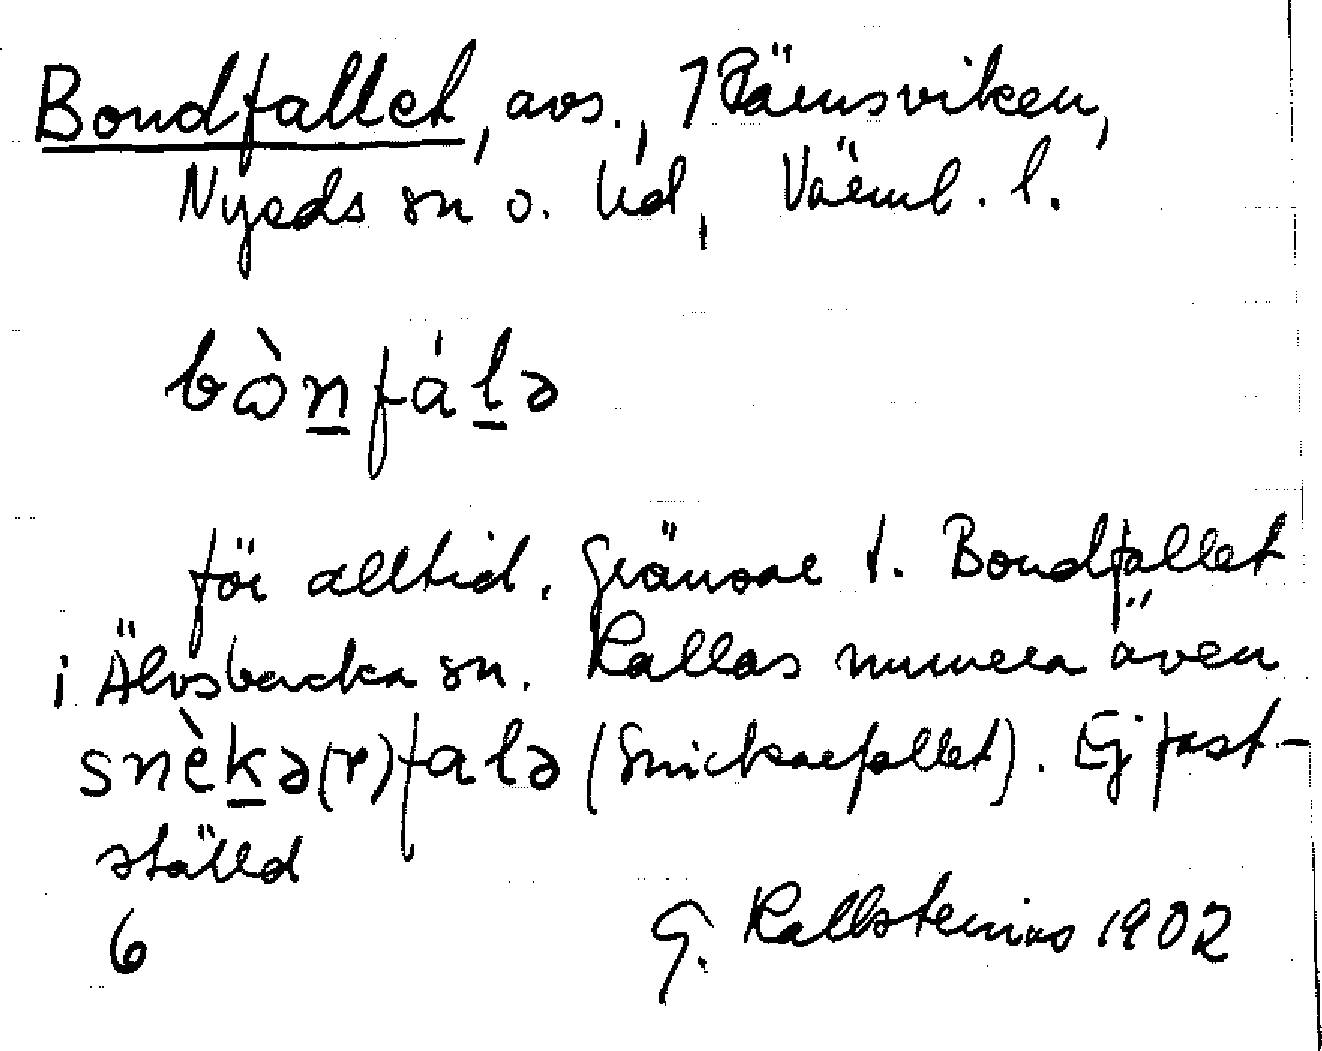 Bondfallet, avs., 1 Rämsviken,
Nyeds sn o. hd, Värml. l.
bὼn̲fál̲ə
för alltid. Gränsar t. Bondfallet
i Älvsbacka sn. Kallas numera även
snèk̲ə(r)falə (Snickarfallet). Ej fast-
ställd
6 G. Kallstenius 1902